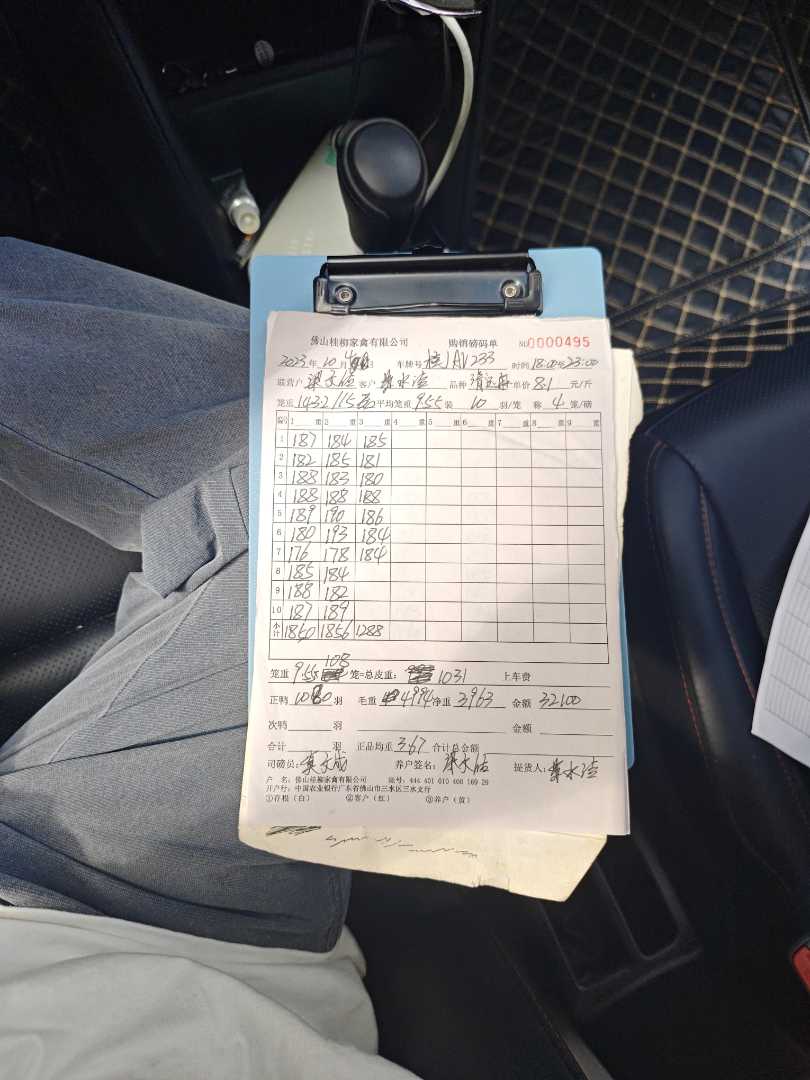 佛山桂柳家禽有限公司 购销磅码单 NO0000495
2023年10月4日 车牌号 桂JAV233 时间18:00至23:00
联营户 客户 水 品种 清远 单价8.1 元/斤
笼重1432 115 平均笼重9.55装 10 羽/笼 称 4 笼/磅
编号 1 重 2 重 3 重 4 重 5 重 6 重 7 重 8 重 9 重
1 187 184 185
2 182 185 181
3 188 183 180
4 188 188 188
5 189 190 186
6 180 193 184
7 176 178 184
8 185 184
9 188 182
10 187 189
小计 1850 1856 1288
笼重 9.55 108 笼=总皮重: 1031 上车费
正鸭 1080 羽 毛重 4994 净重 3963 金额 32100
次鸭 羽 金额
合计 羽 正品均重 3.67 合计总金额
司磅员: 文成 养户签名: 提货人: 水
户 名: 佛山桂柳家禽有限公司 账号: 444 401 010 400 169 26
开户行: 中国农业银行广东省佛山市三水区三水支行
①存根(白) ②客户(红) ③养户(黄)